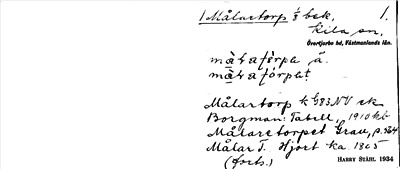 1 Målartorp 1/8 bek. 1.
Kila sn,
Övertjurbo hd, Västmanlands län.
mà̱ḷatårpa å.
mà̱ḷatårpat
Målartorp k G83 NV ek
Borgman: Tabell, 1910 kb
Målaretorpet Grau, p. 564
Målar T. Hjort ka 1805
(forts.) HARRY STÅHL 1934